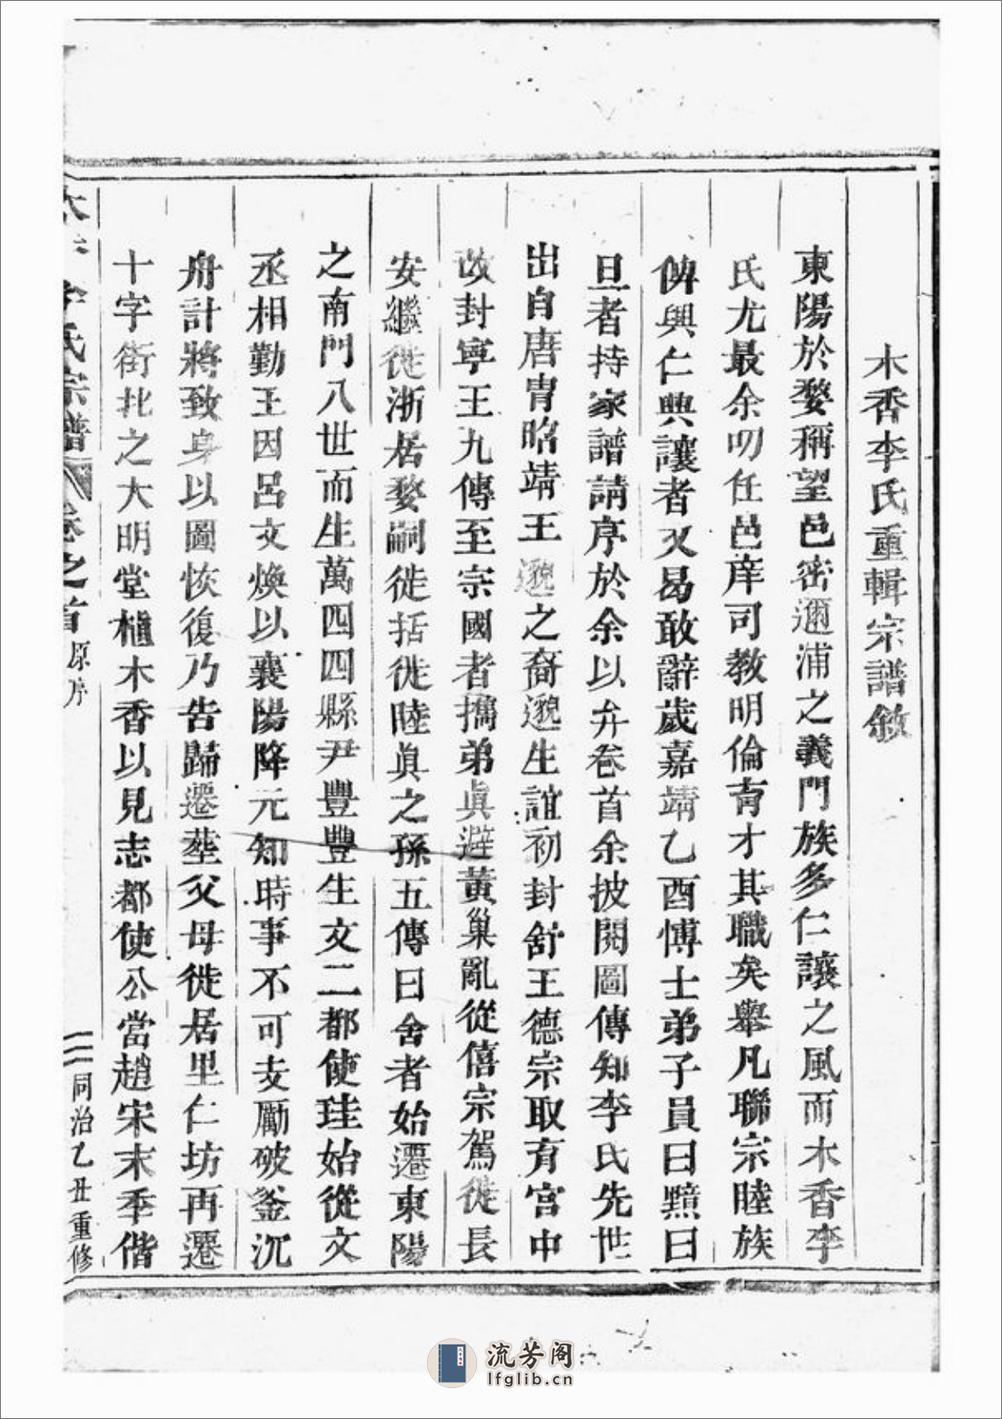 木香李氏重輯宗譜敘
東陽於婺稱望邑密邇浦之義門族多仁讓之風而木香李
氏尤最余叨任邑庠司教明倫育才其職矣舉凡聯宗睦族
俾興仁興讓者又曷敢辭歲嘉靖乙酉博士弟子員曰㬎曰
旦者持家譜請序於余以弁卷首余披閱圖傳知李氏先世
出自唐胄昭靖王邈之裔邈生誼初封舒王德宗取育宮中
改封寧王九傳至宗國者攜弟眞避黃巢亂從僖宗駕徙長
安繼從浙居婺嗣徙括徙睦眞之孫五傳曰舍者始遷東陽
之南門八世而生萬四四縣尹豐豐生文二都使珪始從文
丞相勤王因呂文煥以襄陽降元知時事不可支勵破釜沉
舟計將致身以圖恢復乃告歸遷塟父母徙居里仁坊再遷
十字街北之大明堂植木香以見志都使公當趙宋末季偕
李氏宗譜 卷之首 原序 二 同治乙丑重修
流芳阁
lfglib.cn